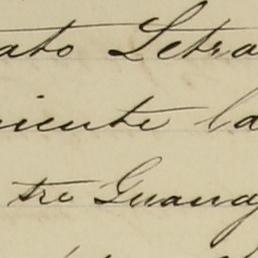 ato Letra
iente la
tre Guana